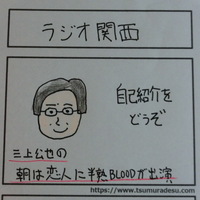 ラジオ関西
自己紹介を
どうぞ
三上公也の
朝は恋人に半熟BLOODが出演
https://www.tsumuradesu.com